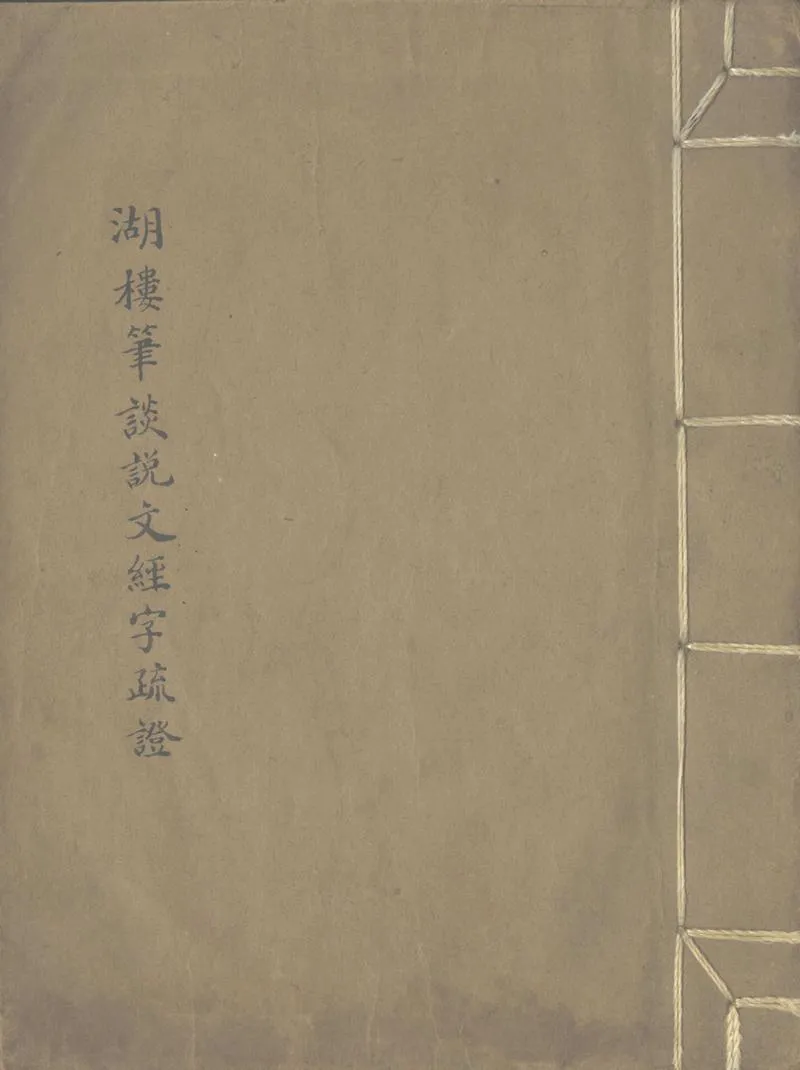 湖樓筆談説文經字疏證